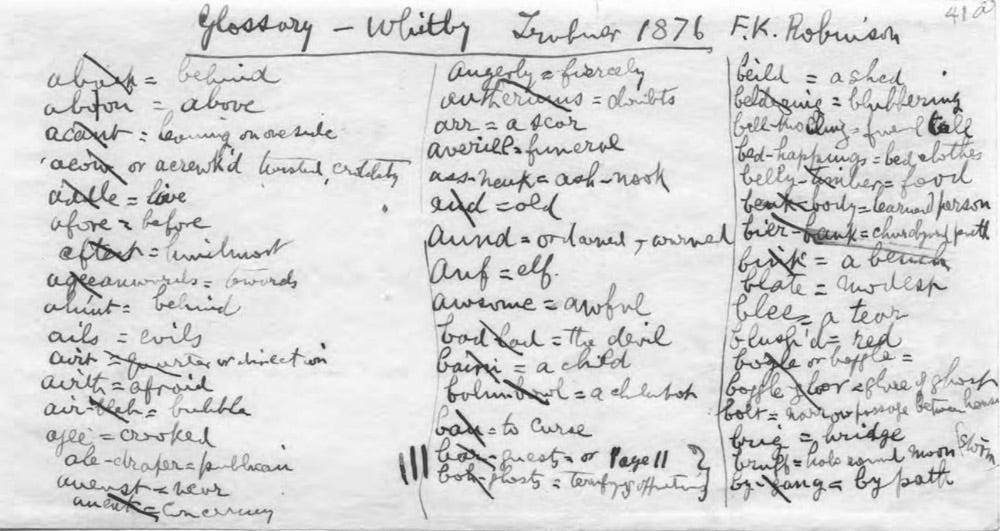 41a
Glossary - Whitby Trubner 1876 F.K. Robinson
aback = behind
aboon = above
acant = leaning on one side
acow or acrewk'd twisted, crookedly
addle =
afore = before
= hindmost
= towards
ahint = behind
ails = evils
airt = quarter or direction
airth = afraid
air-bleb = bubble
ajee = crooked
ale-draper = publican
anenst = near
anent = concerning
angerly = fiercely
= doubts
arr = a scar
averill = funeral
ass-neuk = ash-nook
aud = old
aund = ordained, warned
Auf = elf.
awsome = awful
bad lad = the devil
bairn = a child
=
ban = to curse
bar-guest = or Page 11
boh-ghosts = terrifying
beild = a shed
beldering = blubbering
= funeral call
bed-happings = bed clothes
belly-timber = food
beuk-body = learned person
bier-bank = churchyard path
bink = a bench
blate = modest
blee = a tear
blush'd = red
boggle or boggle =
boggle-gloor = glare of ghost
bolt = narrow passage between houses
brig = bridge
bruff = halo round moon (storm
by-gang = by path